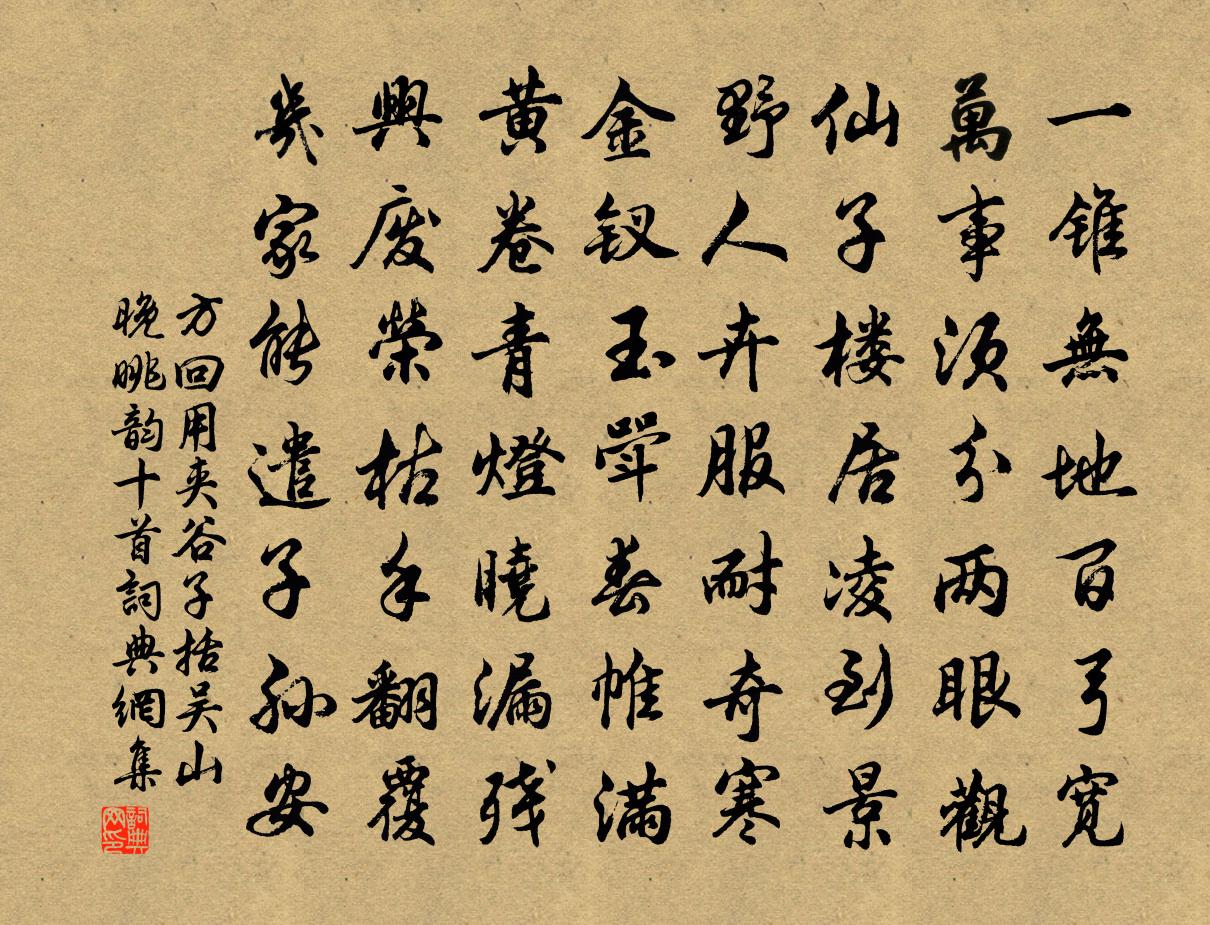 一錐無地百弓寬
萬事須分兩眼觀
仙子楼居凌到景
野人卉服耐奇寒
金钗玉斝春帷満
黄卷青燈曉漏残
興廢榮枯手翻覆
幾家能遣子孫安
方回用夹谷子括吴山
晚眺韵十首詞典網集
詞典网印